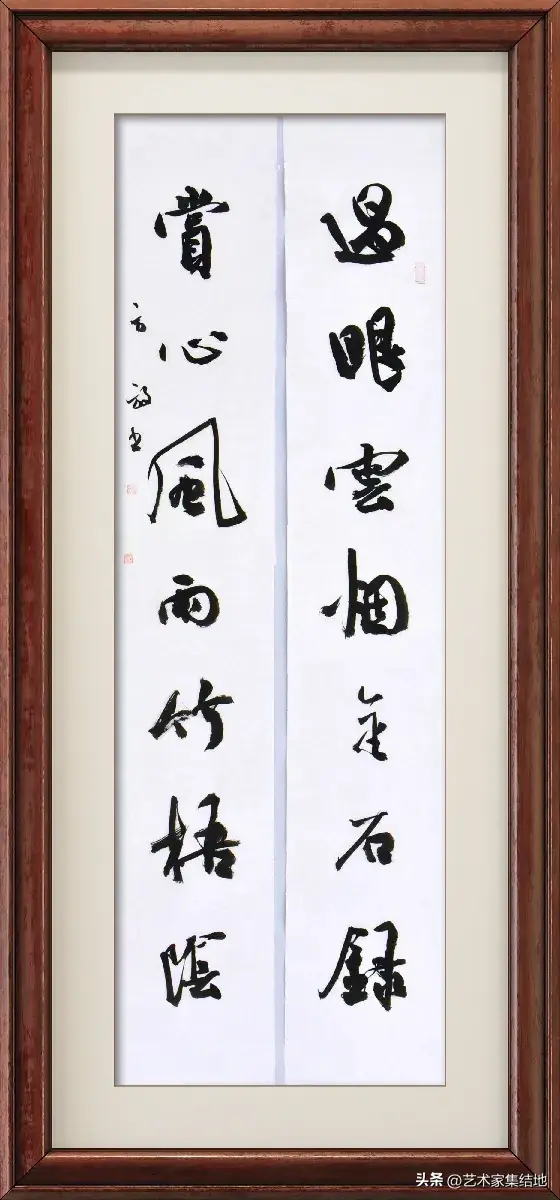 過眼雲烟金石録
賞心風雨竹梧陰
头条 @艺术家集结地